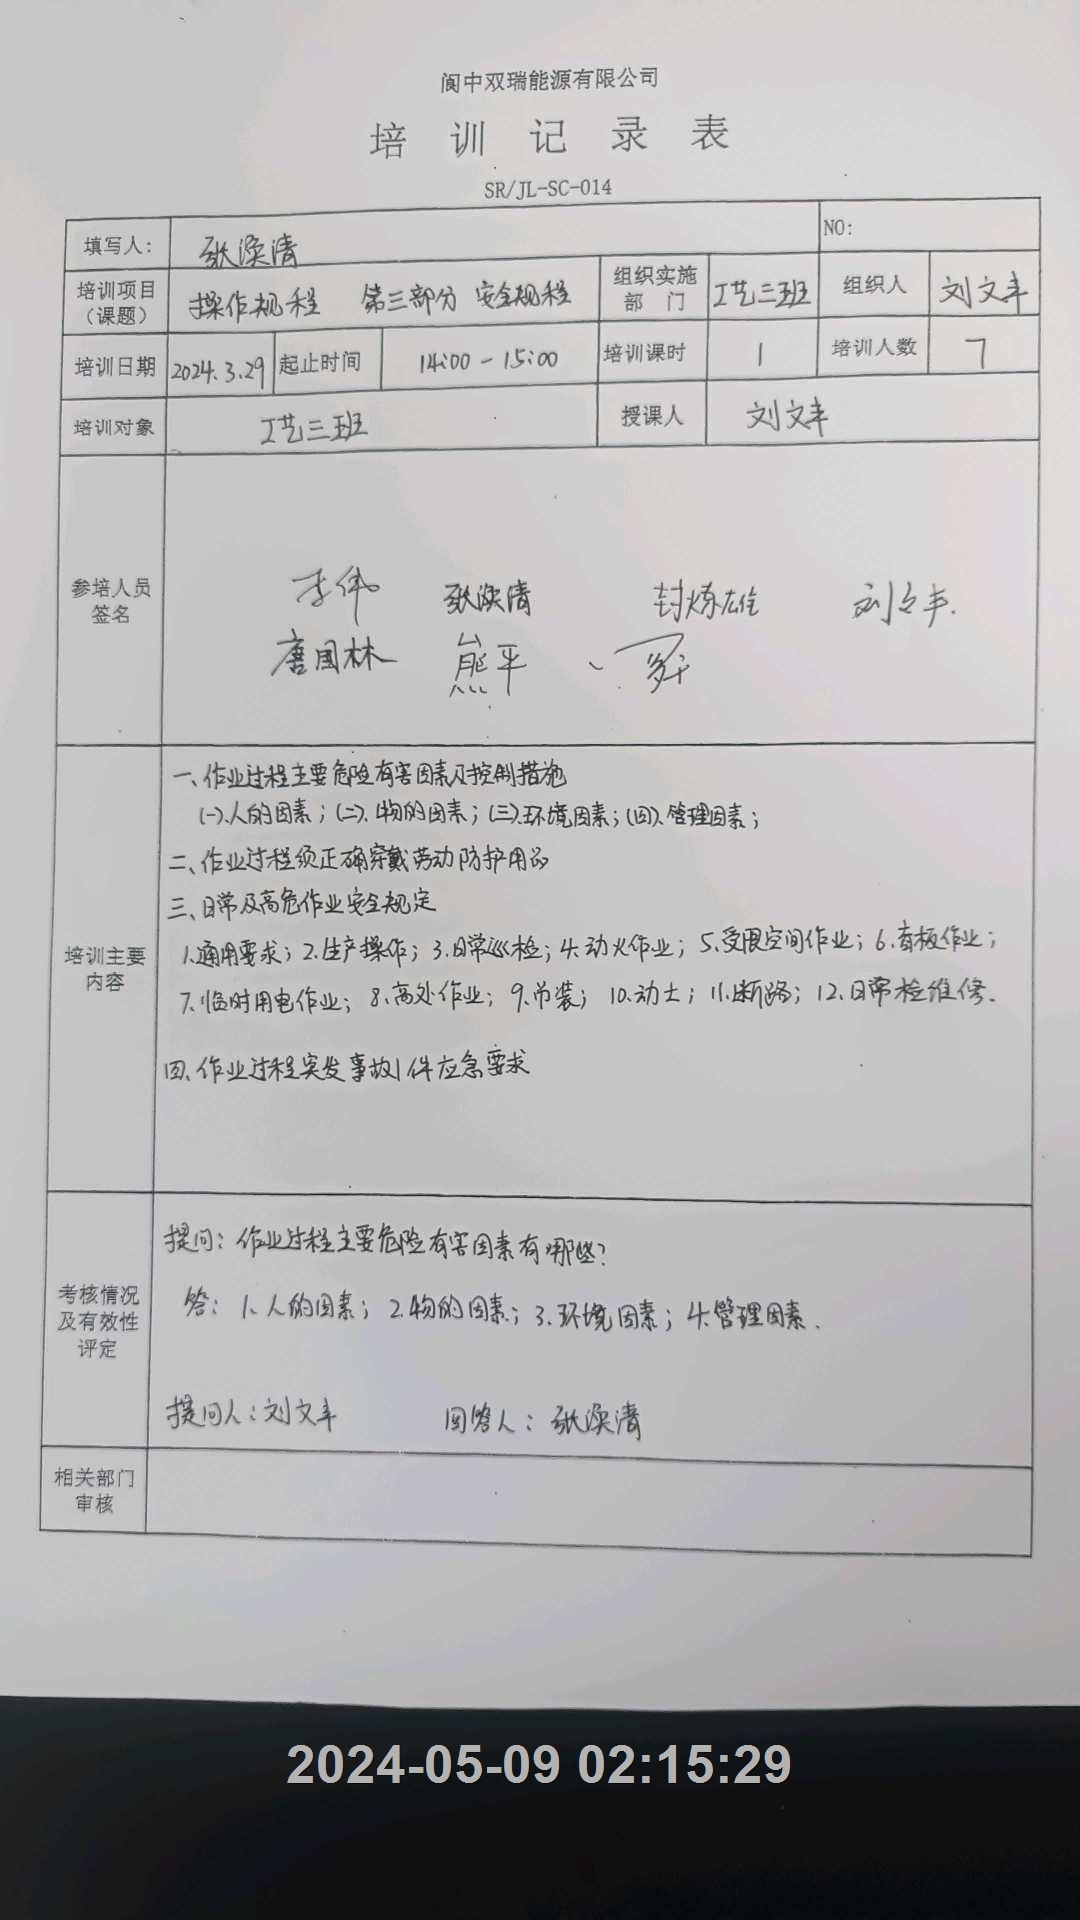 阆中双瑞能源有限公司
培训记录表
SR/JL-SC-014
填写人: 张涣清 NO:
培训项目（课题） 操作规程 第三部分 安全规程 组织实施部门 工艺三班 组织人 刘文丰
培训日期 2024.3.29 起止时间 14:00-15:00 培训课时 1 培训人数 7
培训对象 工艺三班 授课人 刘文丰
参培人员签名
李伟 张涣清 封炼雄 刘文丰
唐国林 熊平
培训主要内容
一、作业过程主要危险有害因素及控制措施
(一).人的因素；(二).物的因素；(三).环境因素；(四).管理因素；
二、作业过程须正确穿戴劳动防护用品
三、日常及高危作业安全规定
1.通用要求；2.生产操作；3.日常巡检；4.动火作业；5.受限空间作业；6.盲板作业；
7.临时用电作业；8.高处作业；9.吊装；10.动土；11.断路；12.日常检维修.
四、作业过程突发事故件应急要求
考核情况及有效性评定
提问：作业过程主要危险有害因素有哪些？
答：1.人的因素；2.物的因素；3.环境因素；4.管理因素.
提问人：刘文丰 回答人：张涣清
相关部门审核
2024-05-09 02:15:29